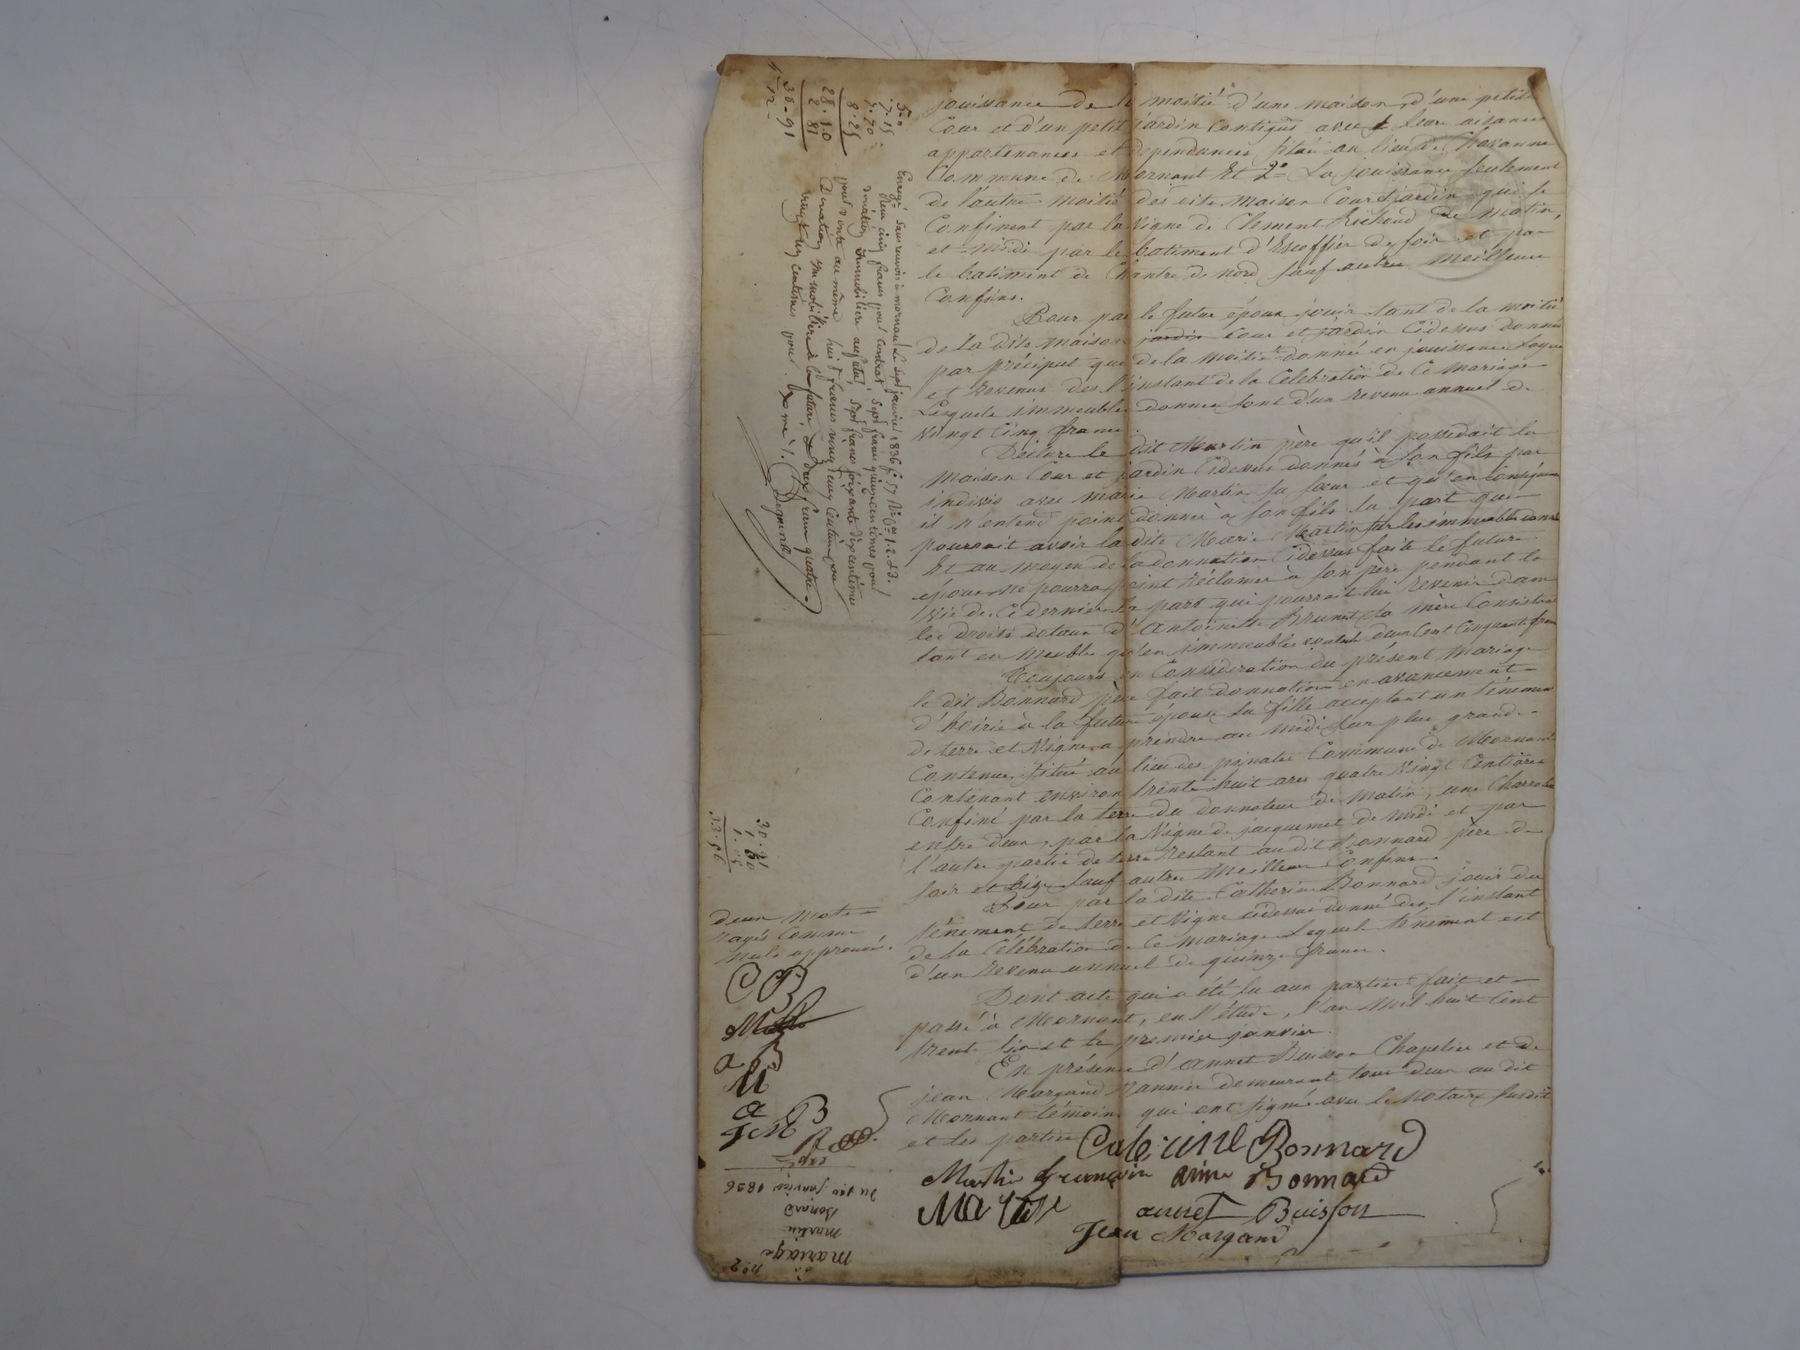 jouissance de la moitié d'une maison, d'une petite
Cour et d'un petit jardin contigus avec leurs aisances
appartenances et dépendances situé au lieu de Chavanne
Commune de Mornant Et 2° La jouissance seulement
de l'autre moitié des dits maison Cour & jardin qui se
Confinent par la Vigne de Clement Richoud de matin,
et midi par le batiment d'Escoffier de soir et par
le batiment de Chantre de nord sauf autres meilleurs
Confins.
Pour par le futur époux jouir tant de la moitié
de la dite maison jardin Cour et jardin Cidessus donné
par préciput que de la moitié donnée en jouissance
et Revenus dès l'instant de la Celebration de Ce Mariage
Lesquels immeubles donnés sont d'un revenu annuel de
Vingt Cinq francs.
Déclare le dit Martin père qu'il possedait la
maison Cour et jardin Cidessus donnés à son fils par
indivis avec marie Martin sa sœur et qu'en Conséquence
il n'entend point donner à son fils la part que
pourrait avoir la dite Marie Martin sur les immeubles donnés
Et au moyen de la donnation Cidessus faite le futur
époux ne pourra point Réclamer à son père pendant la
Vie de Ce dernier la part qui pourrait lui Revenir dans
les droits dotaux d'Antoinette Brunet sa mère Consistant
tant en Meubles qu'en immeubles Cent Cinquante francs
Toujours en Consideration du présent Mariage
le dit Bonnard père fait donnation en avancement
d'hoirie à la future épouse sa fille acceptant un tènement
de terre et Vigne a prendre au midi sur plus grande
Contenue, situé au lieu des pinales Commune de Mornant
Contenant environ trente huit ares quatre Vingt Centiares
Confiné par la terre du donnateur de Matin, une Charrière
entre deux, par la Vigne de jacquemet de Midi et par
l'autre partie de terre Restant au dit Bonnard père de
soir et bize sauf autres Meilleurs Confins.
Pour par la dite Catherine Bonnard jouir du
tènement de terre et Vigne cidessus donné des l'instant
de la Célébration de Ce Mariage Lequel tènement est
d'un Revenu annuel de quinze francs.
Dont acte qui a été lu aux parties fait et
passé à Mornant, en l'étude, l'an Mil huit Cent
trente six et le premier janvier.
En présence d'annet Buisson Chapelier et de
jean Margand Vannier demeurant tous deux au dit
Mornant témoins qui ont signé avec le Notaire susdit
et les parties
Caterine Bonnard
Martin françois aime Bonnard
Martin annet Buisson
Jean Margand
5 "
7. 15
7. 70
8. 25
28. 10
2. 81
30. 91
Enregé sans renvoi à mornant Le sept janvier 1836 f° 57 R° Ces 1. 2. & 3.
Reçu cinq francs pour Contrat, sept francs quinze centimes pour
Donation immobilière au futur, sept francs soixante dix centimes
pour vente au même, huit francs vingt cinq centimes pour
Donation immobilière à la future & deux francs quatre
vingt un centimes pour
30. 91
33. 96
Deux Mots
rayés Comme
nuls approuvés.
C B
M
a B
M
a B
J M
du 1er janvier 1836
Bonard
martin
mariage
n° 2